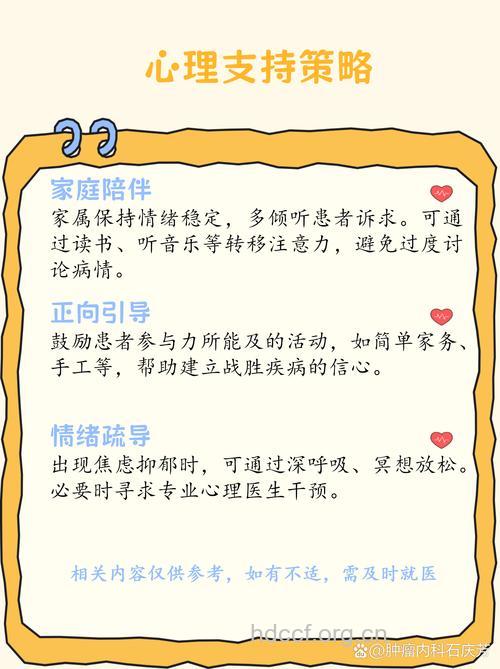 心理支持策略
家庭陪伴
家属保持情绪稳定，多倾听患者诉求。可通
过读书、听音乐等转移注意力，避免过度讨
论病情。
正向引导
鼓励患者参与力所能及的活动，如简单家务、
手工等，帮助建立战胜疾病的信心。
情绪疏导
出现焦虑抑郁时，可通过深呼吸、冥想放松。
必要时寻求专业心理医生干预。
相关内容仅供参考，如有不适，需及时就医
hdccf.org.cn
@肿瘤内科石庆芳